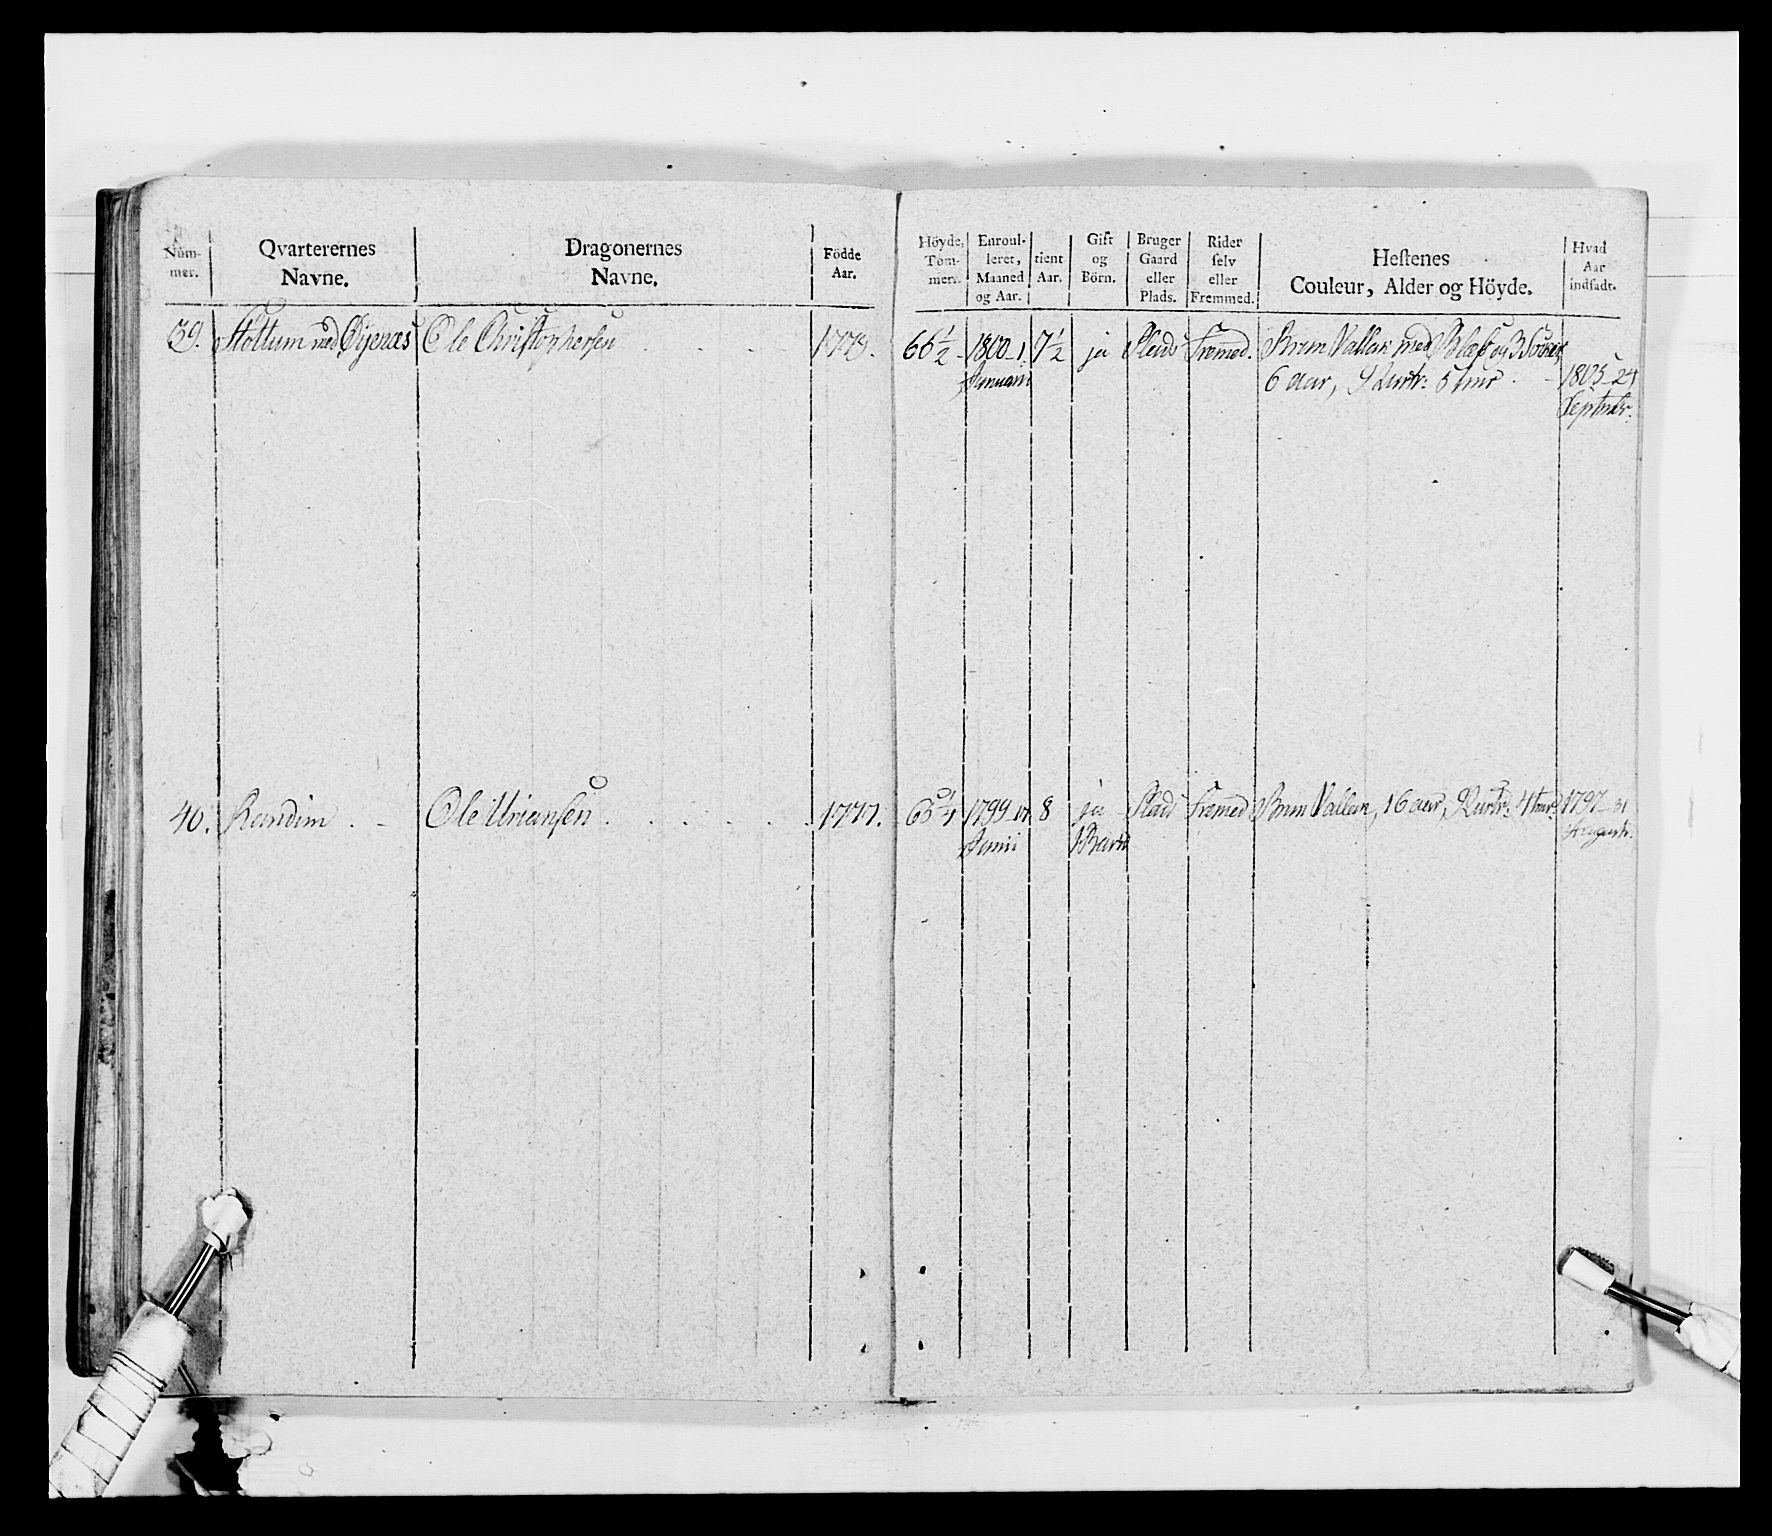 Num-
mer.
Qvarterernes
Navne.
Dragonernes
Navne.
Födde
Aar.
Höyde,
Tom-
mer.
Enroul-
leret,
Maaned
og Aar.
tient
Aar.
Gift
og
Börn.
Bruger
Gaard
eller
Plads.
Rider
selv
eller
Fremmed.
Hestenes
Couleur, Alder og Höyde.
Hvad
Aar
indsadt.
39. Støttum med Ole Christophersen 1773. 66½ 1800_1. 7½ ja Plads Fremed. Brun Vallak med Blæs og 3 Sokker
Januarii 6 aar, 9 Qvartr: 5 tmr 1805_24
Septmbr.
40. Randim Ole Uriansen 1777. 65¼ 1799_17. 8 ja Plads Fremed Brun Vallak, 16 aar, 9 Qvartr: 4 tmr: 1797_31
Junii 1 Barn Augusti.